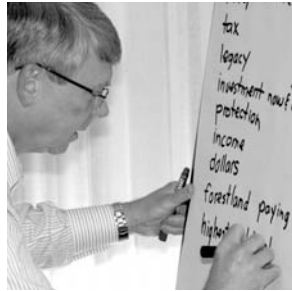 tax
legacy
investment now &
protection
income
dollars
forestland paying
highest